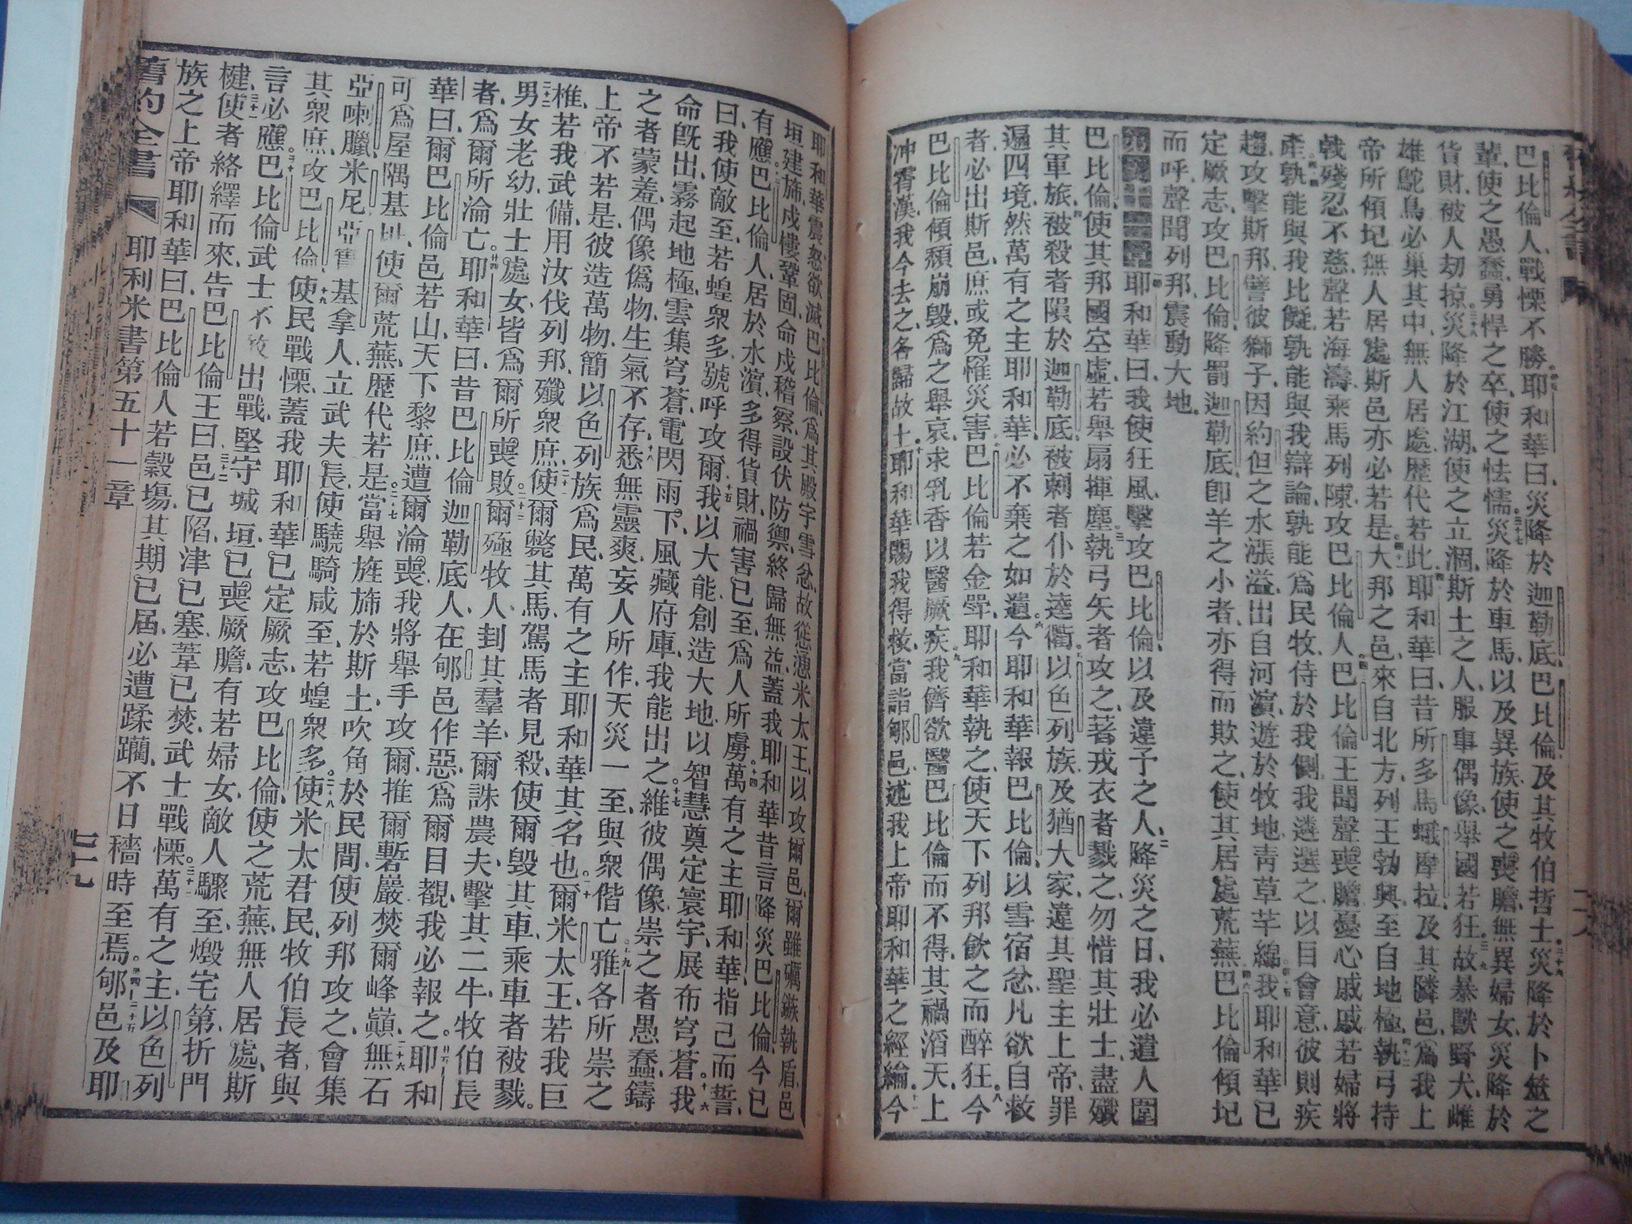 巴比倫人、戰慄不勝、耶和華曰、災降於迦勒底、巴比倫、及其牧伯哲士、災降於卜筮之
輩、使之愚蠢、勇悍之卒、使之怯懦、災降於車馬、以及異族、使之喪膽、無異婦女、災降於
貨財、被人刧掠、災降於江湖、使之立涸、斯土之人、服事偶像、舉國若狂、故暴獸野犬、雌
雄鴕鳥、必巢其中、無人居處、歷代若此、耶和華曰、昔所多馬蛾摩拉及其隣邑、為我上
帝所傾圮、無人居處、斯邑亦必若是、大邦之邑、來自北方、列王勃興、至自地極、執弓持
戟、殘忍不慈、聲若海濤、乘馬列陳、攻巴比倫人、巴比倫王聞聲喪膽、憂心戚戚、若婦將
產、孰能與我比儗、孰能與我辯論、孰能為民牧、侍於我側、我遴選之、以目會意、彼則疾
趨、攻擊斯邦、譬彼獅子、因約但之水漲溢、出自河濱、遊於牧地、靑草芊綿、我耶和華已
定厥志、攻巴比倫、降罰迦勒底、卽羊之小者、亦得而欺之、使其居處荒蕪、巴比倫傾圮
而呼、聲聞列邦、震動大地。
耶和華曰、我使狂風、擊攻巴比倫、以及違予之人、降災之日、我必遣人圍
巴比倫、使其邦國空虛、若舉扇揮塵、執弓矢者攻之、著戎衣者戮之、勿惜其壯士、盡殲
其軍旅、被殺者隕於迦勒底、被刺者仆於逵衢、以色列族、及猶大家、違其聖主上帝、罪
徧四境、然萬有之主耶和華、必不棄之如遺、今耶和華報巴比倫、以雪宿忿、凡欲自救
者、必出斯邑、庶或免罹災害、巴比倫若金斝、耶和華執之、使天下列邦飲之而醉狂、今
巴比倫傾頹崩毀、為之舉哀、求乳香以醫厥疾、我儕欲醫巴比倫而不得、其禍滔天、上
冲霄漢、我今去之、各歸故土、耶和華賜我得救、當詣郇邑、述我上帝耶和華之經綸、今
耶和華震怒、欲滅巴比倫、為其殿宇雪忿、故從憑米太王以攻爾邑、爾雖礪鏃執盾、邑
垣建斾、戍樓鞏固、命戍稽察、設伏防禦、終歸無益、蓋我耶和華昔言降災巴比倫、今已
有應、巴比倫人居於水濱、多得貨財、禍害已至、為人所虜、萬有之主耶和華指己而誓、
曰、我使敵至、若蝗衆多、號呼攻爾、我以大能創造大地、以智慧奠定寰宇、展布穹蒼、我
命旣出、霧起地極、雲集穹蒼、電閃雨下、風藏府庫、我能出之、維彼偶像、崇之者愚蠢、鑄
之者蒙羞、偶像偽物、生氣不存、悉無靈爽、妄人所作、天災一至、與衆偕亡、雅各所崇之
上帝不若是、彼造萬物、簡以色列族為民、萬有之主耶和華其名也、爾米太王、若我巨
椎、若我武備、用汝伐列邦、殲衆庶、使爾斃其馬、駕馬者見殺、使爾毀其車、乘車者被戮、
男女老幼壯士處女、皆為爾所喪敗、爾殛牧人、刲其羣羊、爾誅農夫、擊其二牛、牧伯長
者、為爾所淪亡、耶和華曰、昔巴比倫迦勒底人、在郇邑作惡、為爾目覩、我必報之、耶和
華曰、爾巴比倫邑若山、天下黎庶、遭爾淪喪、我將舉手攻爾、推爾塹巖、焚爾峰巔、無石
可為屋隅基址、使爾荒蕪、歷代若是、當舉旌斾於斯土、吹角於民間、使列邦攻之、會集
亞喇臘、米尼、亞實基拿人、立武夫長、使驍騎咸至、若蝗衆多、使米太君民、牧伯長者、與
其衆庶、攻巴比倫、使民戰慄、蓋我耶和華已定厥志、攻巴比倫、使之荒蕪、無人居處、斯
言必應、巴比倫武士不敢出戰、堅守城垣、已喪厥膽、有若婦女、敵人驟至、燬宅第、折門
楗、使者絡繹而來、告巴比倫王曰、邑已陷、津已塞、葦已焚、武士戰慄、萬有之主、以色列
族之上帝耶和華曰、巴比倫人若穀塲、其期已屆、必遭蹂躪、不日穡時至焉、郇邑及耶
舊約全書 耶利米書第五十一章